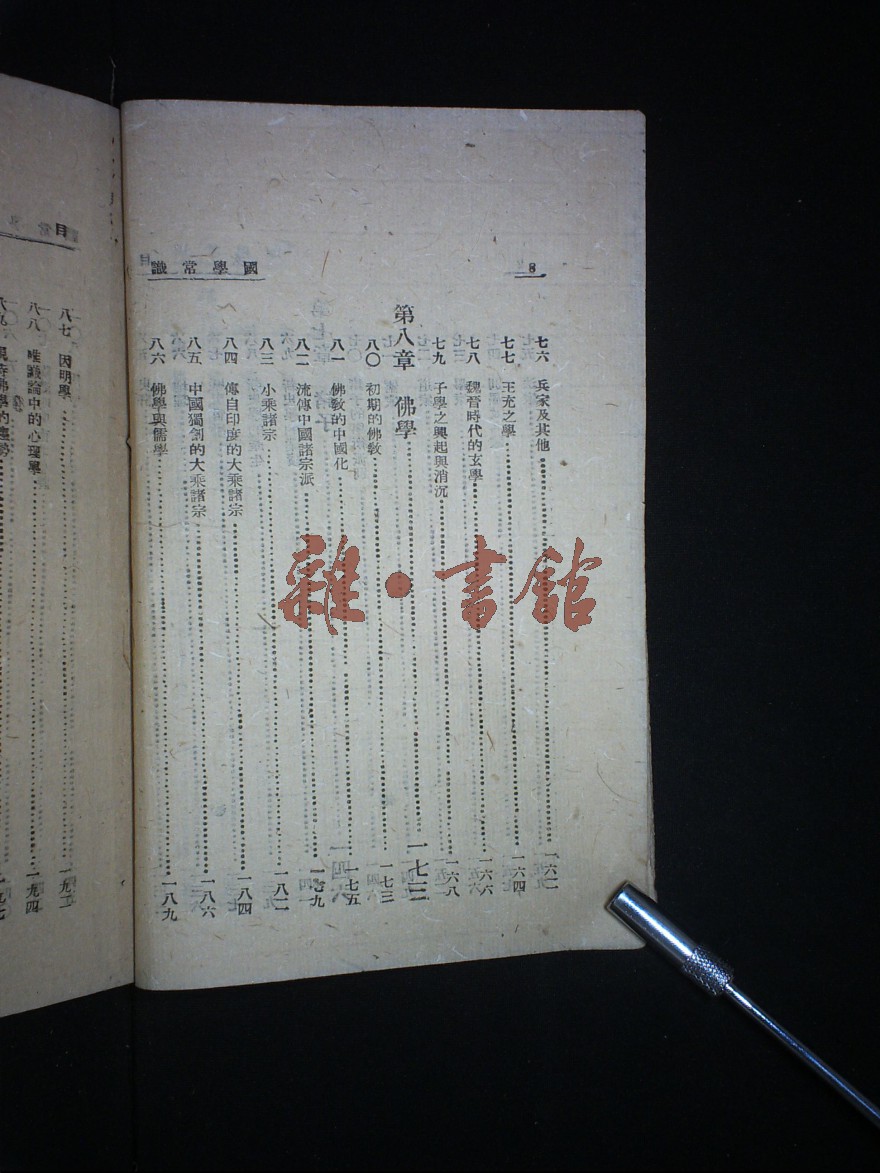 國學常識
8
七六 兵家及其他 一六二
七七 王充之學 一六四
七八 魏晉時代的玄學 一六六
七九 子學之興起與消沉 一六八
第八章 佛學 一七三
八〇 初期的佛教 一七三
八一 佛教的中國化 一七五
八二 流傳中國諸宗派 一七九
八三 小乘諸宗 一八二
八四 傳自印度的大乘諸宗 一八四
八五 中國獨創的大乘諸宗 一八六
八六 佛學與儒學 一八九
目
八七 因明學 一九二
八八 唯識論中的心理學 一九四
雜·書館